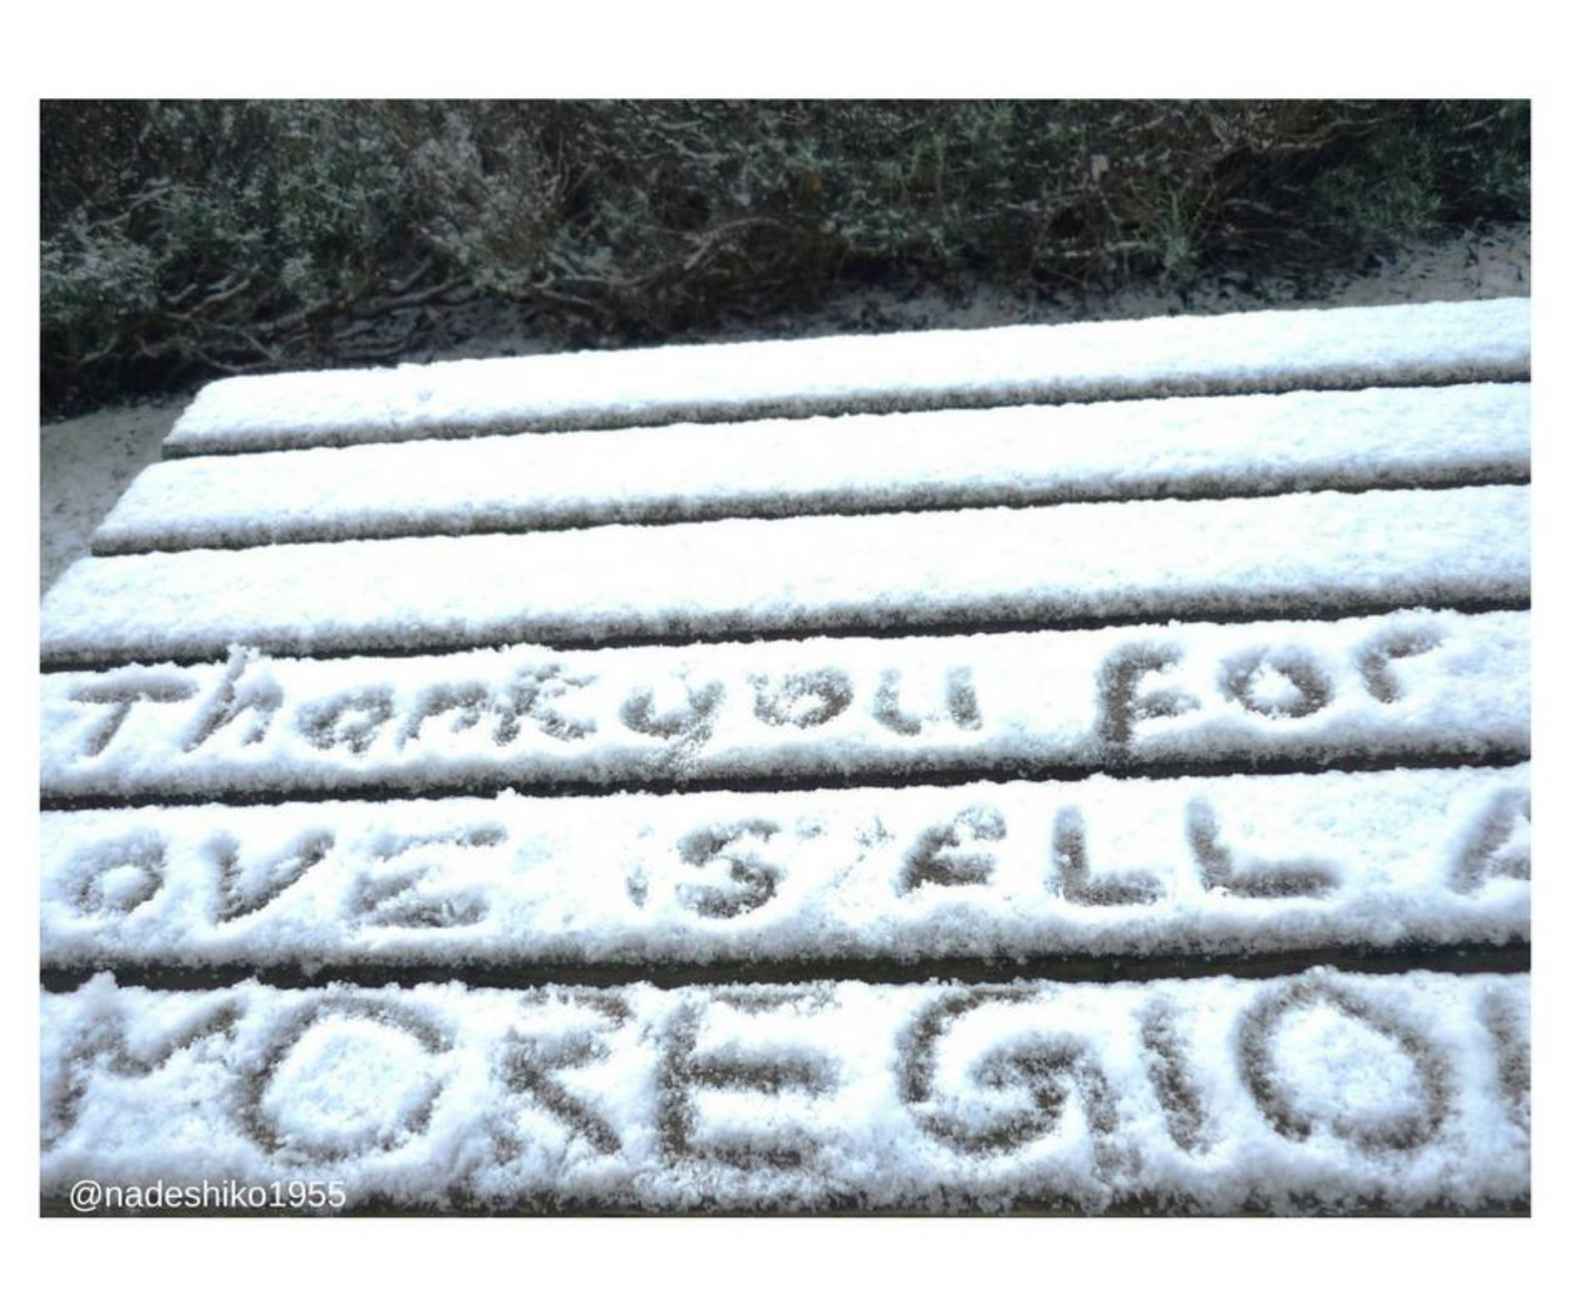 Thank you For
OVE iS ELL A
MOREGIO
@nadeshiko1955